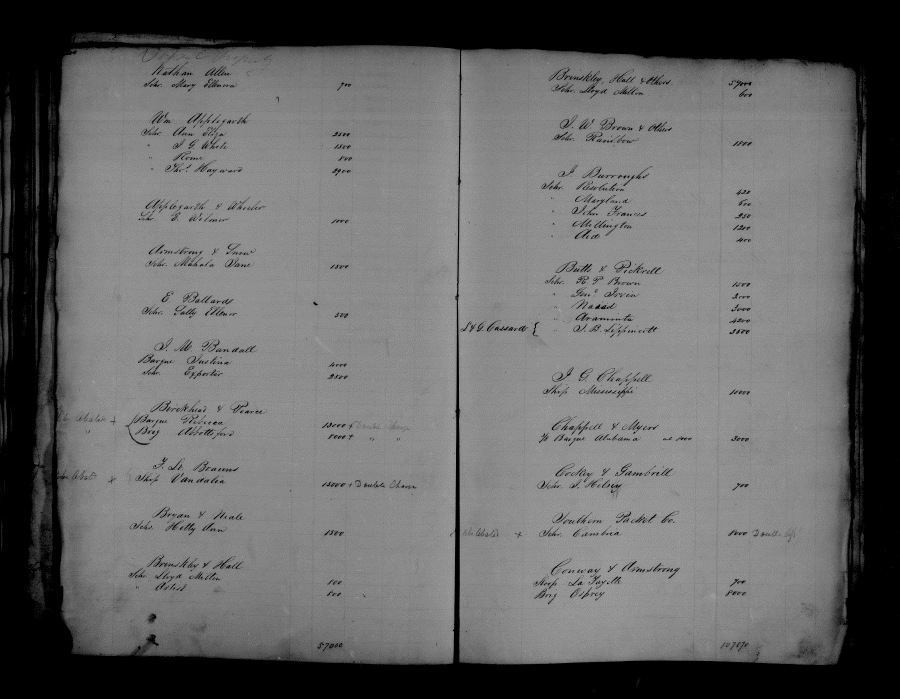 Nathan Allen
Schr. Mary Ellenora 700
Wm Applegarth
Schr Ann Eliza 2500
" J G White 1500
" Rome 800
" Thos. Hayward 2900
Applegarth & Wheeler
Schr E. Wilmer 1000
Armstrong & Snow
Schr. Mahala Jane 1500
E Ballards
Schr. Sally Ellenor 500
J. M. Bandall
Barque Justina 4000
Schr. Exporter 2500
Birckhead & Pearce
Barque Rebecca 13000 +
Brig Abbottsford 8000 + " "
F. L. Brauns
x Ship Vandalia 15000 + Double Charge
Bryan & Neale
Schr. Hetty Ann 1500
Brinskley & Hall
Schr Lloyd Mellen 100
" Artist 800
57000
Brinskley, Hall & Others. 57000
Schr. Lloyd Mellen 600
J. W. Brown & Others
Schr. Rainbow 1500
J Burroughs
Schr. Resolution 420
" Maryland 600
" John Frances 250
" Millington 1200
" Aid 400
Butts & Pickrell
Schr. R P Brown 1500
" Genl. Irvin 3000
" Naaid 3000
" Araminta 4200
L & G. Cassard { " J. B. Lippincott 3500
J G. Chappell
Ship Mississippi 1000
Chappell & Myers
Barque Alabama 3000
Cockey & Gambrill
Schr. J. Helsey 700
Southern Packet Co.
x Schr. Cambria 8000 Double
Conway & Armstrong
Sloop La Fayette 700
Brig Osprey 8000
107870